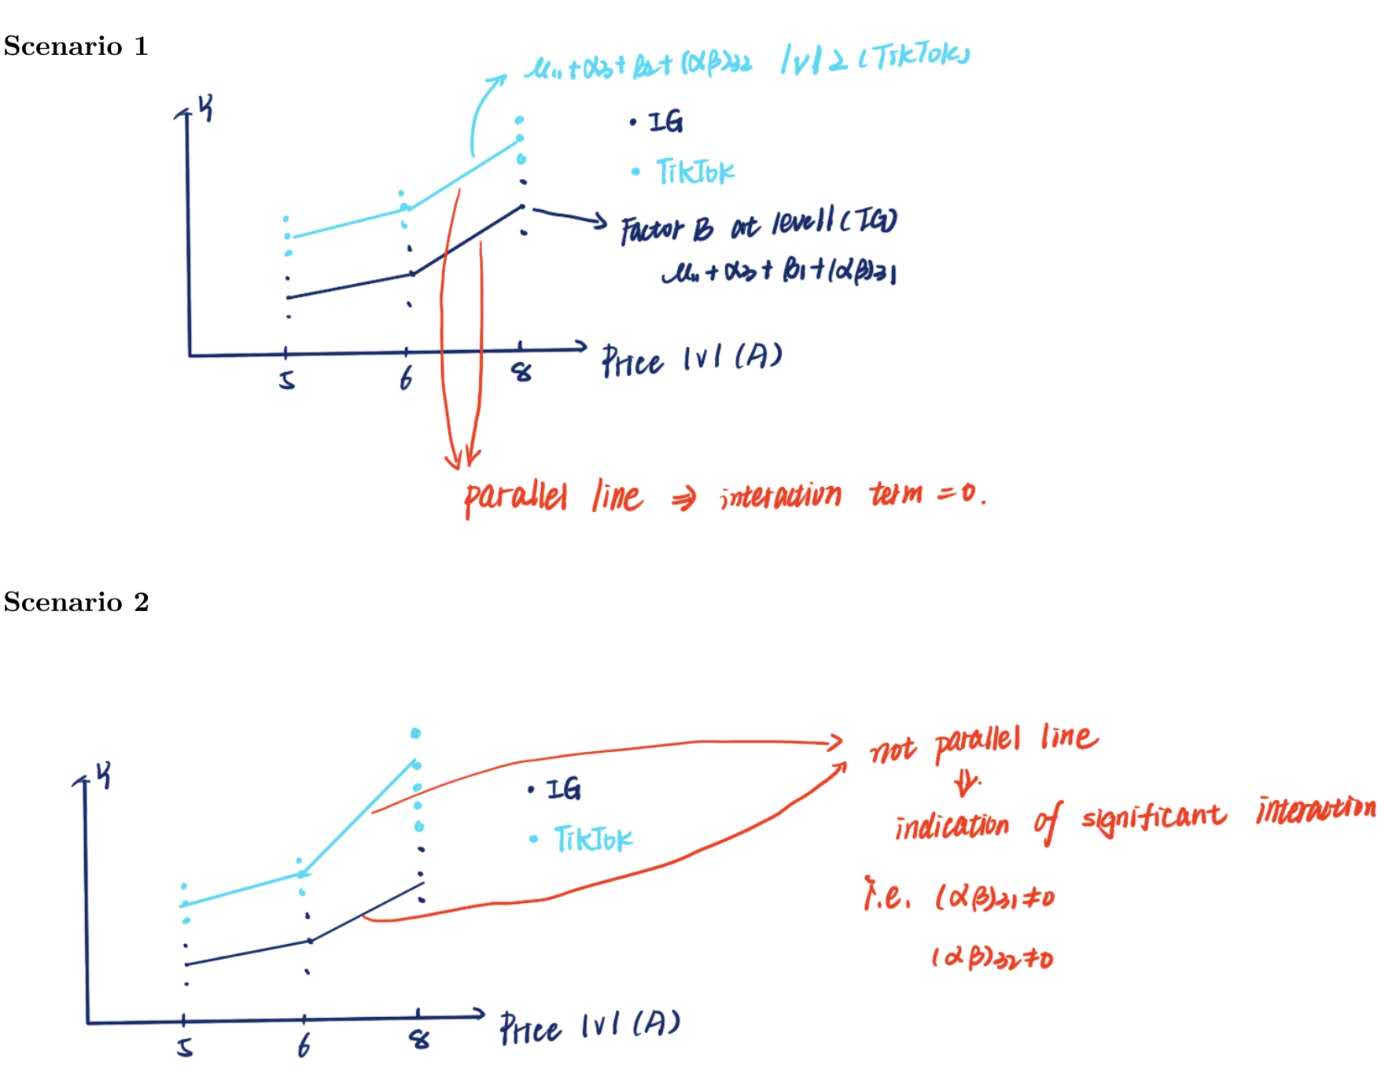 Scenario 1
μ.. + α3 + β2 + (αβ)32 lvl 2 (TikTok)
Y
• IG
• TikTok
Factor B at level 1 (IG)
μ.. + α3 + β1 + (αβ)31
5 6 8 Price lvl (A)
parallel line ⇒ interaction term = 0.
Scenario 2
not parallel line
Y
⇓
• IG
indication of significant interaction
• TikTok
i.e. (αβ)31 ≠ 0
(αβ)32 ≠ 0
5 6 8 Price lvl (A)